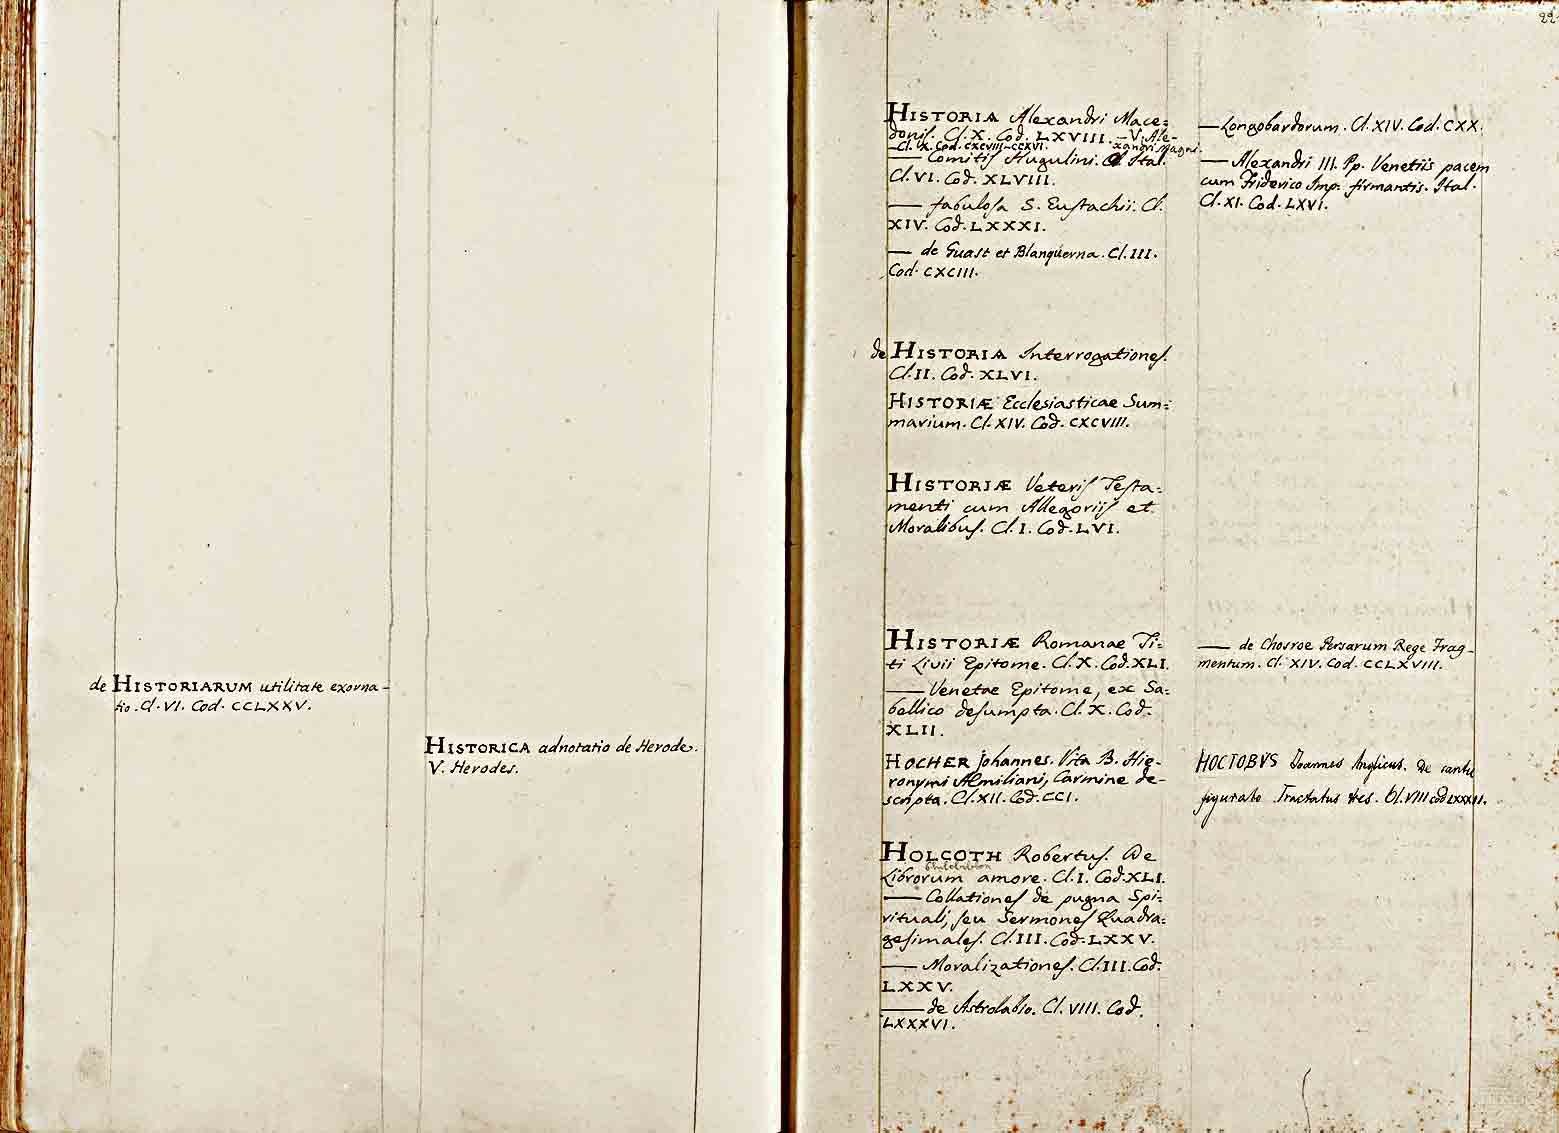 de HISTORIARUM utilitate exorna-
tio. Cl. VI. Cod. CCLXXV.
HISTORICA adnotatio de Herode.
V. Herodes.
22
HISTORIA Alexandri Mace=
donis. Cl. X. Cod. LXVIII. – V. Ale-
xandri Magni.
– Cl. X. Cod. CXCVIII–CCXVI.
— Comitis Hugulini. Ital.
Cl. VI. Cod. XLVIII.
— fabulosa S. Eustachii. Cl.
XIV. Cod. LXXXI.
— de Guast et Blanquerna. Cl. III.
Cod. CXCIII.
de HISTORIA Interrogationes.
Cl. II. Cod. XLVI.
HISTORIÆ Ecclesiasticae Sum=
marium. Cl. XIV. Cod. CXCVIII.
HISTORIÆ Veteris Testa=
menti cum Allegoriis et
Moralibus. Cl. I. Cod. LVI.
HISTORIÆ Romanae Ti=
ti Livii Epitome. Cl. X. Cod. XLI.
— Venetae Epitome, ex Sa=
bellico desumpta. Cl. X. Cod.
XLII.
HOCHER Johannes. Vita B. Hie-
ronymi Aemiliani, Carmine de-
scripta. Cl. XII. Cod. CCI.
HOLCOTH Robertus. De
Philobiblon
Librorum amore. Cl. I. Cod. XLI.
— Collationes de pugna Spi=
rituali, seu Sermones Quadra=
gesimales. Cl. III. Cod. LXXV.
— Moralizationes. Cl. III. Cod.
LXXV.
— de Astrolabio. Cl. VIII. Cod.
LXXXVI.
— Longobardorum. Cl. XIV. Cod. CXX.
— Alexandri III. Pp. Venetiis pacem
cum Friderico Imp. firmantis. Ital.
Cl. XI. Cod. LXVI.
— de Chosroe Persarum Rege Frag-
mentum. Cl. XIV. Cod. CCLXVIII.
HOCTOBVS Joannes Anglicus. De cantu
figurato Tractatus tres. Cl. VIII cod LXXXII.